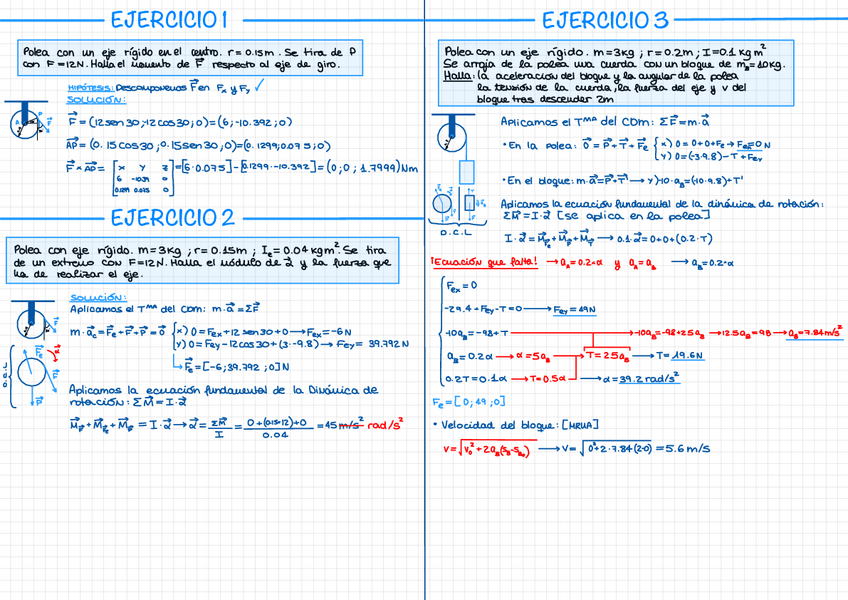 EJERCICIO 1
Polea con un eje rígido en el centro. r = 0.15m. Se tira de P
con F = 12N. Halla el momento de F⃗ respecto al eje de giro.
HIPÓTESIS: Descomponemos F⃗ en Fx y Fy ✓
SOLUCIÓN:
F⃗ = (12sen30;-12cos30;0)=(6;-10.392;0)
AP⃗ = (0.15cos30;0.15sen30;0)=(0.1299;0.075;0)
F⃗ × AP⃗ = [x y z
6 -10.39 0
0.1299 0.075 0] = [6·0.075]-[0.1299·-10.392] = (0;0;1.7999)Nm
EJERCICIO 2
Polea con eje rígido. m=3kg ; r=0.15m ; Ie=0.04 kgm². Se tira
de un extremo con F=12N. Halla el módulo de α⃗ y la fuerza que
ha de realizar el eje.
SOLUCIÓN:
Aplicamos el Tᵐᵃ del CDM: m·a⃗ = ΣF⃗
m·a⃗c = F⃗e+F⃗+P⃗ = 0⃗
x) 0 = Fex+12sen30+0 → Fex = -6N
y) 0 = Fey-12cos30+(3·-9.8) → Fey = 39.792N
F⃗e = [-6;39.792;0]N
D.C.L
Aplicamos la ecuación fundamental de la Dinámica de
rotación: ΣM⃗ = I·α⃗
M⃗P+M⃗Fe+M⃗F = I·α⃗ → α⃗ = ΣM⃗/I = 0+(0.15·12)+0/0.04 = 45 m/s² rad/s²
EJERCICIO 3
Polea con un eje rígido. m=3kg ; r=0.2m ; I=0.1 kgm²
Se arroja de la polea una cuerda con un bloque de mB=10kg.
Halla: la aceleracion del bloque y la angular de la polea
la tensión de la cuerda, la fuerza del eje y v del
bloque tras descender 2m
Aplicamos el Tᵐᵃ del CDM: ΣF⃗ = m·a⃗
• En la polea: 0⃗ = P⃗+T⃗+F⃗e
x) 0 = 0+0+Fe → Fex=0N
y) 0=(-3·9.8)-T+Fey
• En el bloque: m·a⃗=P⃗+T⃗' → y)-10·aB=(-10·9.8)+T'
D.C.L
Aplicamos la ecuación fundamental de la dinámica de rotación:
ΣM⃗ = I·α⃗ [se aplica en la polea]
I·α⃗ = M⃗Fe+M⃗P+M⃗T → 0.1·α⃗=0+0+(0.2·T)
¡Ecuación que falta! → aA=0.2·α y aA=aB → aB=0.2·α
Fex = 0
-29.4+Fey-T=0 → Fey = 49N
-10aB=-98+T → -10aB=-98+25aB → 12.5aB=98 → aB=7.84m/s²
aB = 0.2α → α=5aB → T=2.5aB → T=19.6N
0.2T=0.1α → T=0.5α → α=39.2rad/s²
Fe=[0;49;0]
• Velocidad del bloque: [MRUA]
v=√v₀²+2aB(sB-sB₀) → v=√0²+2·7.84(2-0) = 5.6m/s